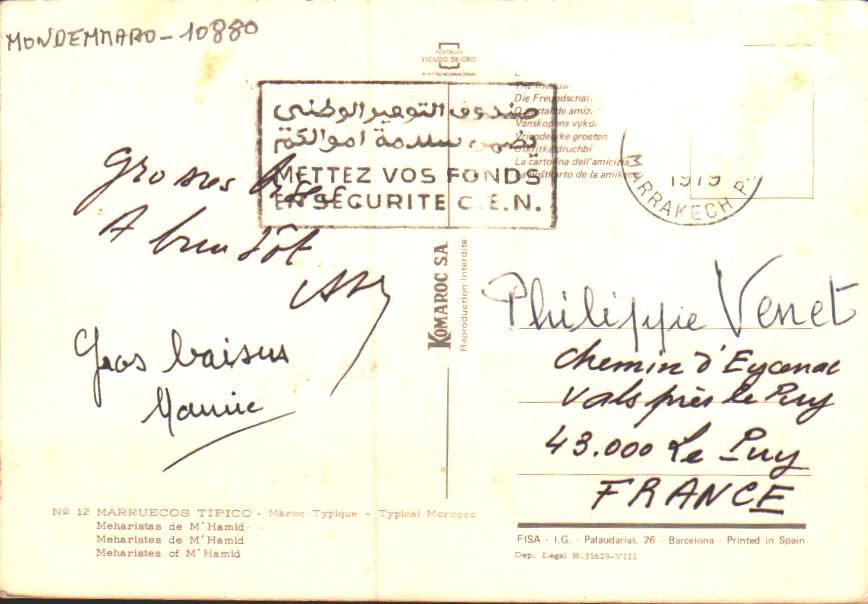 MONDEMMARO - 10880
POSTALES
ESCUDO DE ORO
صندوق التوفير الوطني
يضمن سلامة اموالكم
METTEZ VOS FONDS
EN SÉCURITE C.E.N.
Die Freundschaf
Vanskapens vyko
Vriendelijke groeten
Otkritka druchbi
La cartolina dell'amicizia
La postkarto de la amikec
1979
MARRAKECH P
Grosses bises
A bientôt
Gros baisers
Mamie
KOMAROC S.A.
Reproduction interdite
Philippe Venet
chemin d'Eycenac
Vals près le Puy
43.000 Le Puy
FRANCE
Nº 12 MARRUECOS TIPICO - Maroc Typique - Typical Morocco
Meharistas de M'Hamid
Meharistes de M'Hamid
Meharistes of M'Hamid
FISA - I.G. - Palaudarias, 26 - Barcelona - Printed in Spain
Dep. Legal B.31619-VIII